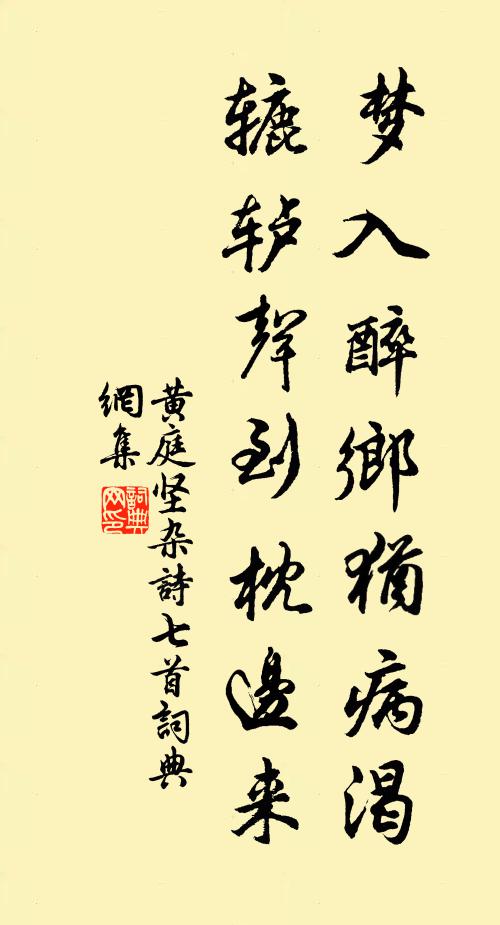 梦入醉鄉猶病渴
辘轳聲到枕邊来
黄庭坚杂詩七首詞典
網集
詞典
网印